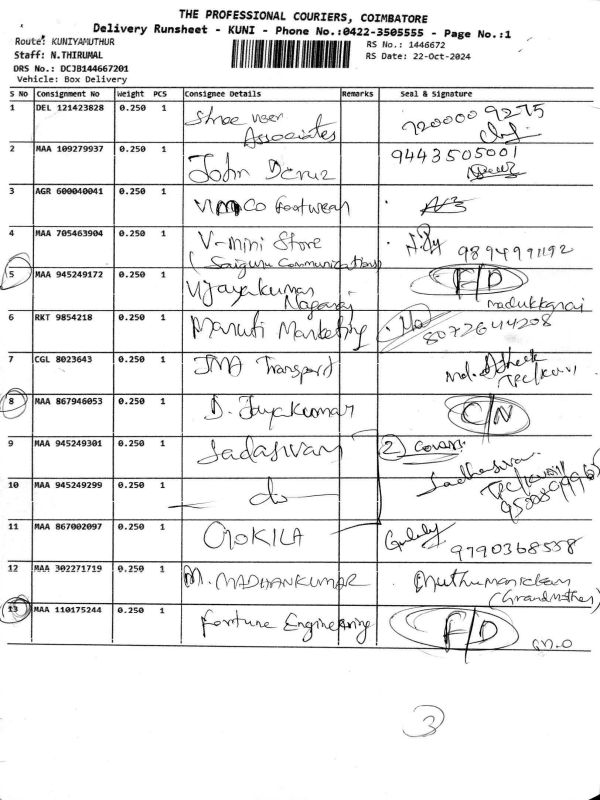 THE PROFESSIONAL COURIERS, COIMBATORE
Delivery Runsheet - KUNI - Phone No.:0422-3505555 - Page No.:1
Route: KUNIYAMUTHUR
RS No.: 1446672
Staff: N.THIRUMAL
RS Date: 22-Oct-2024
DRS No.: DCJB144667201
Vehicle: Box Delivery
S No Consignment No Weight PCS Consignee Details Remarks Seal & Signature
1 DEL 121423828 0.250 1 Shree user Associates 720000 9275
2 MAA 109279937 0.250 1 John 9443505001
3 AGR 600040041 0.250 1 Footwear
4 MAA 705463904 0.250 1 V-mini Store
(Saiguru Communications)
5 MAA 945249172 0.250 1 Vijayakumar Nagaraj F/D
6 RKT 9854218 0.250 1 Maruti Marketing 8072644208
7 CGL 8023643 0.250 1 JMA Transport
8 MAA 867946053 0.250 1 D. Jayakumar C/N
9 MAA 945249301 0.250 1 Sadasivam 2
10 MAA 945249299 0.250 1 do
11 MAA 867002097 0.250 1 OTOKILA 9790368558
12 MAA 302271719 0.250 1 M. MADHANKUMAR Muthumanickam
(Grandmother)
13 MAA 110175244 0.250 1 Fortune Engineering F/D
3